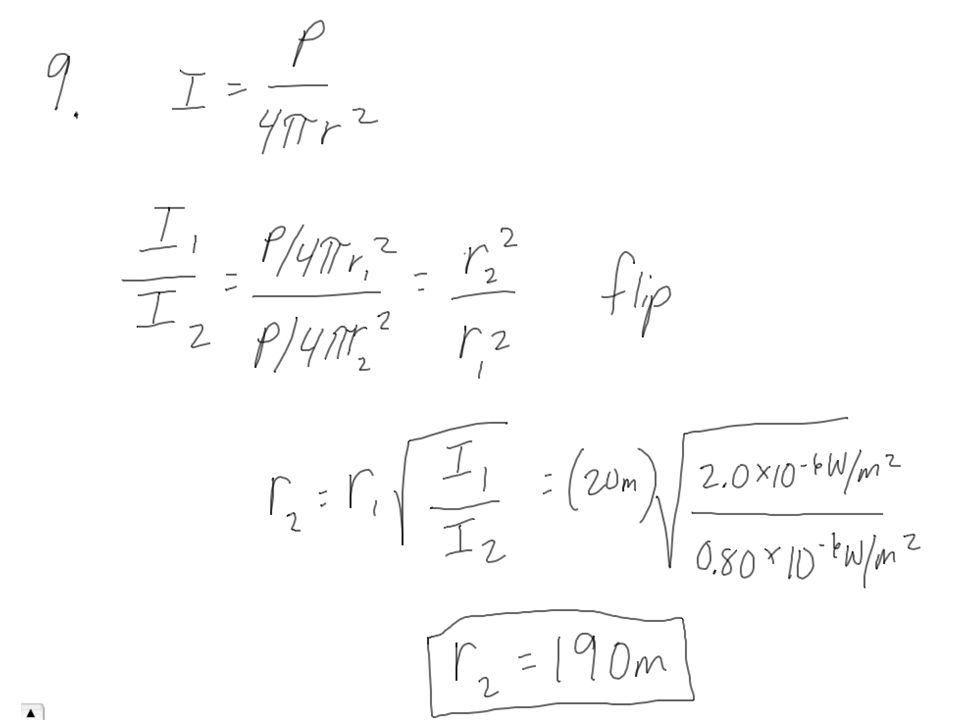 9. I = P / 4πr²
I₁ / I₂ = P/4πr₁² / P/4πr₂² = r₂² / r₁² flip
r₂ = r₁ √(I₁ / I₂) = (20m) √(2.0×10⁻⁶W/m² / 0.80×10⁻⁶W/m²)
r₂ = 190m